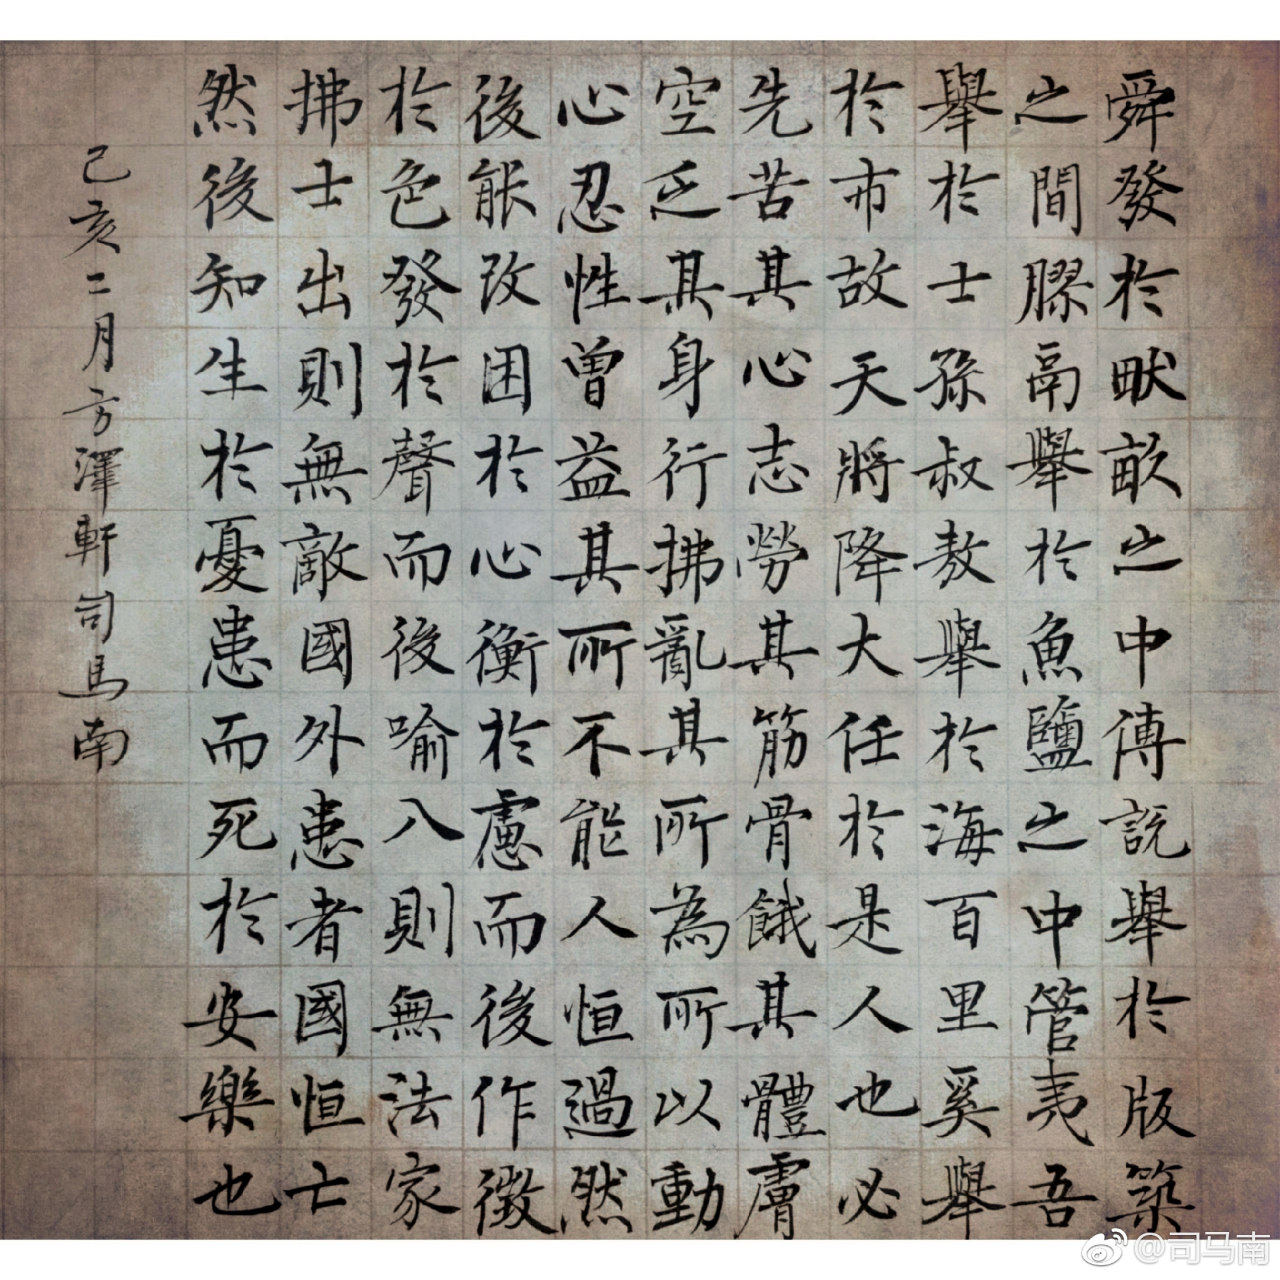 舜發於畎畝之中傅說舉於版築
之間膠鬲舉於魚鹽之中管夷吾
舉於士孫叔敖舉於海百里奚舉
於市故天將降大任於是人也必
先苦其心志勞其筋骨餓其體膚
空乏其身行拂亂其所為所以動
心忍性曾益其所不能人恒過然
後能改困於心衡於慮而後作徵
於色發於聲而後喻入則無法家
拂士出則無敵國外患者國恒亡
然後知生於憂患而死於安樂也
己亥二月方澤軒司馬南
@司马南